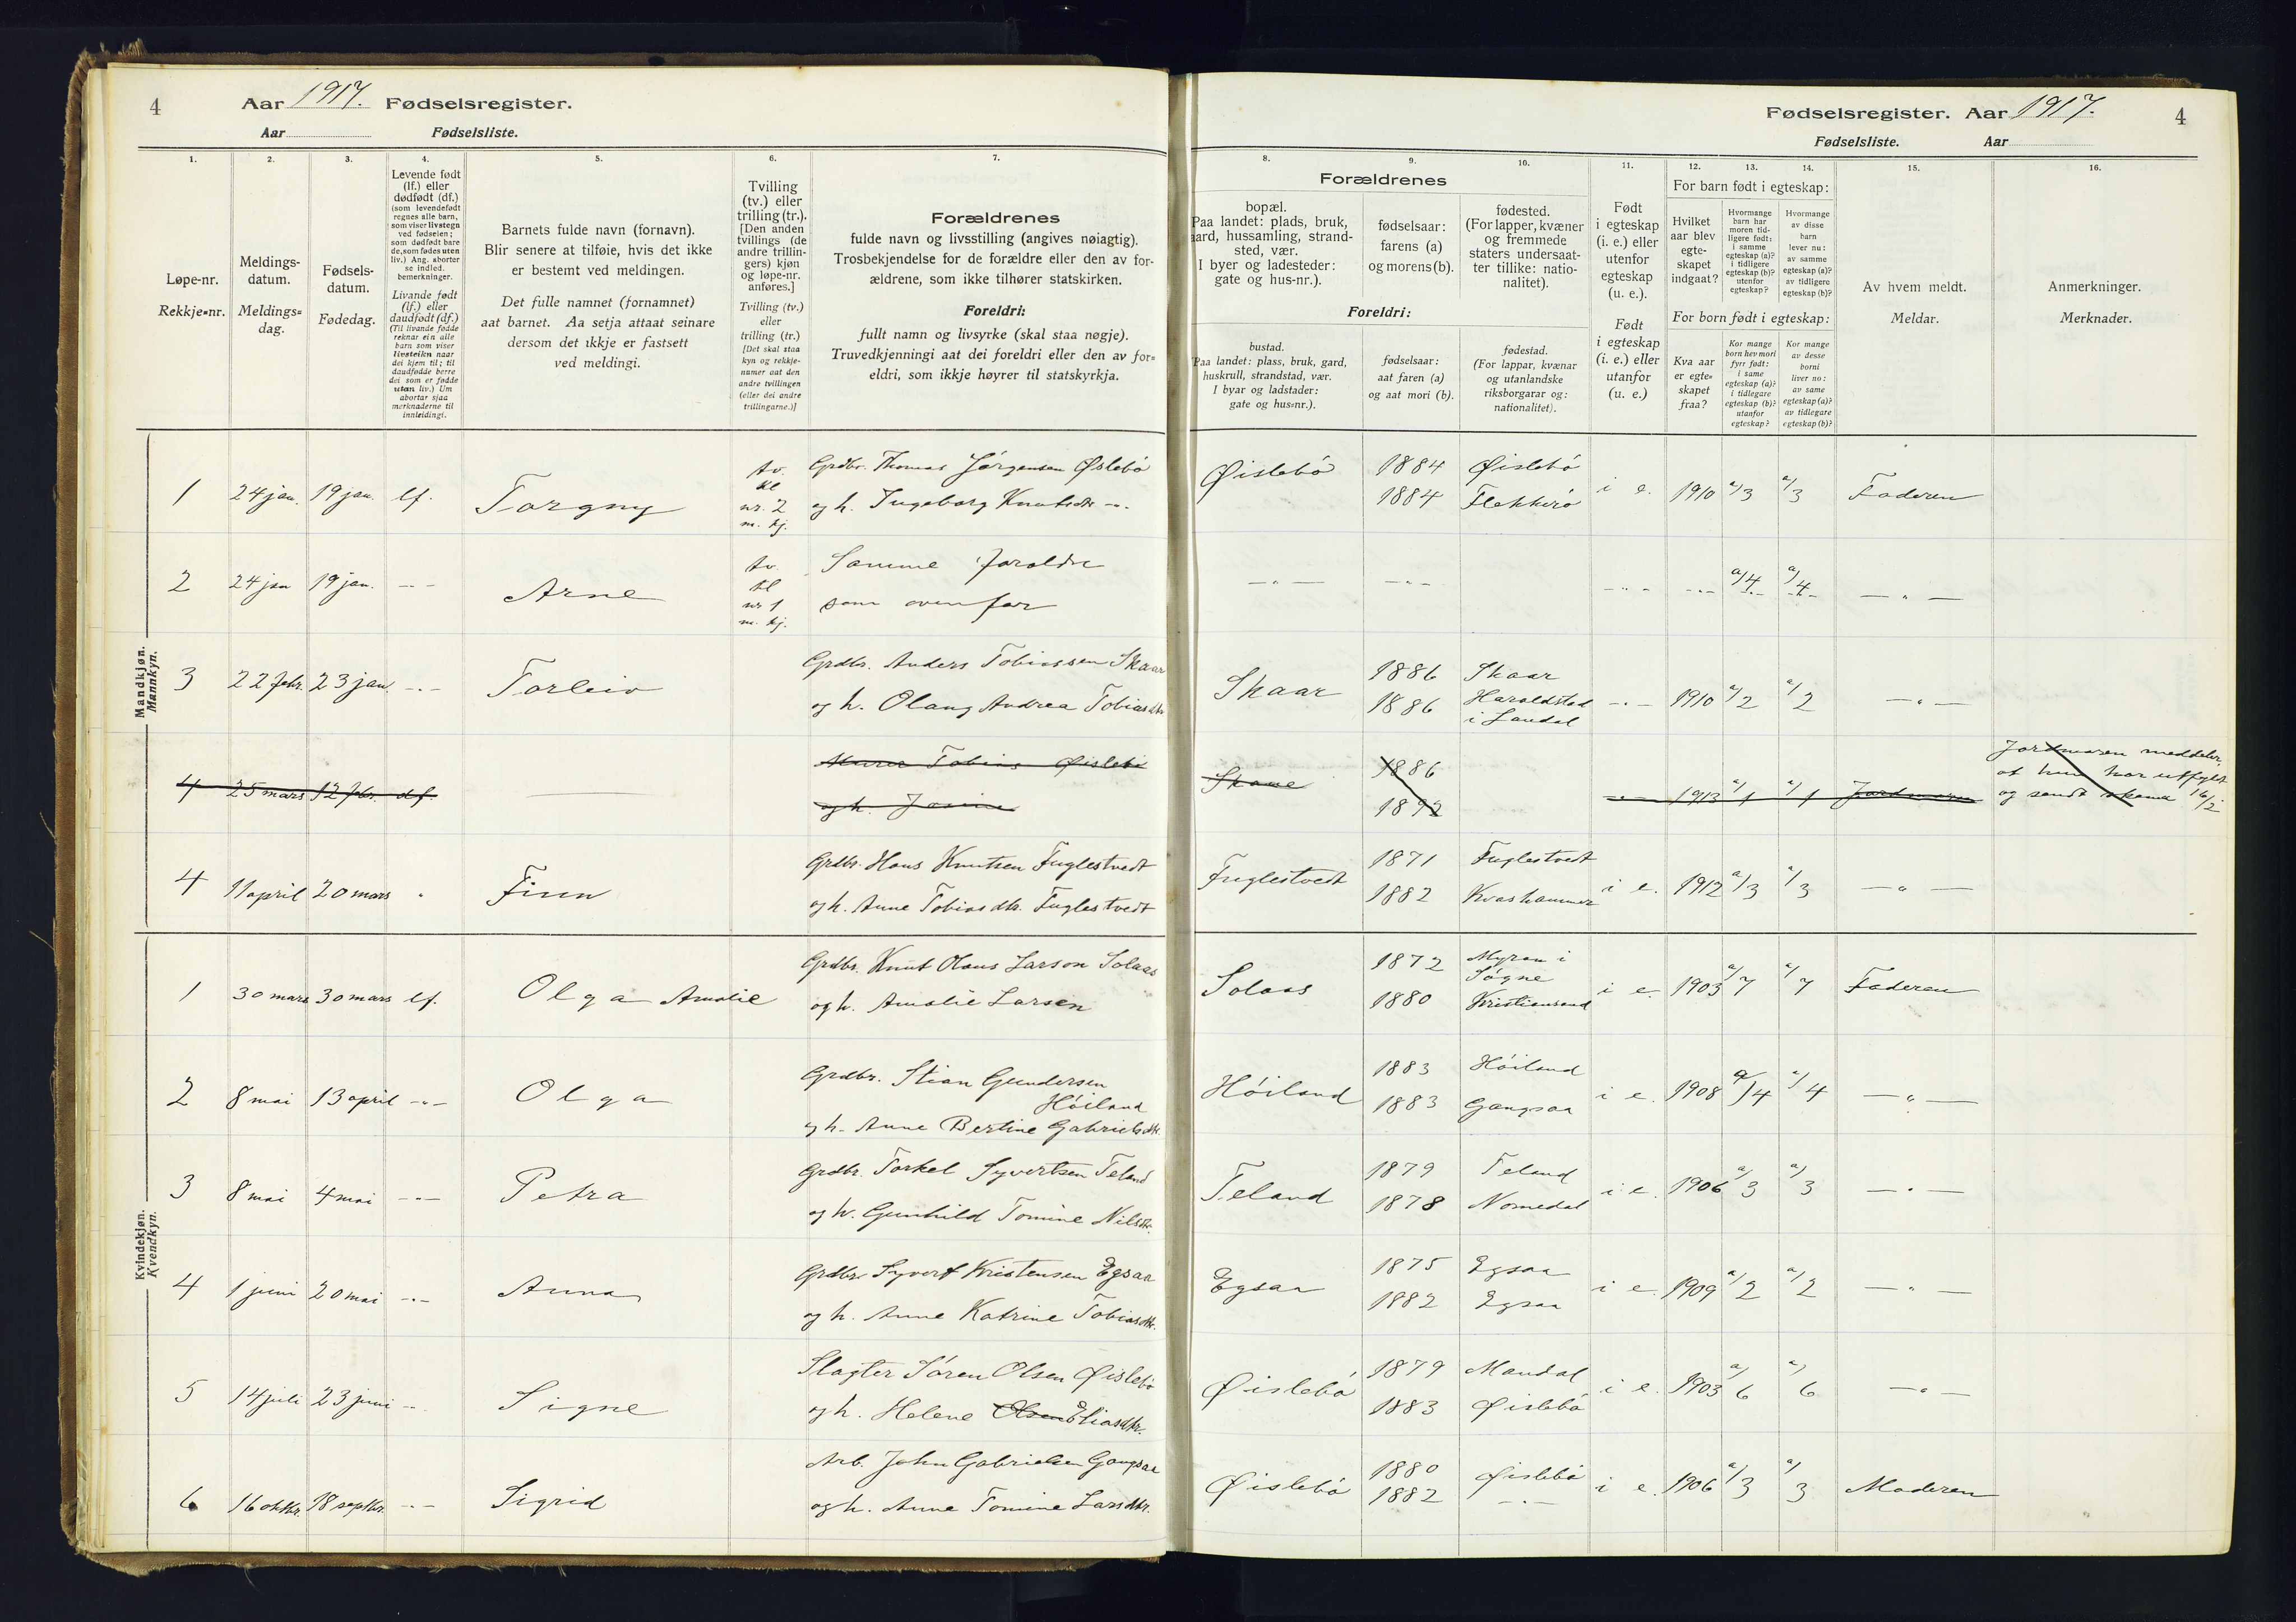 4 Aar 1917. Fødselsregister.
Aar Fødselsliste.
1. 2. 3. 4. 5. 6. 7.
Løpe-nr.
Rekkje=nr.
Meldings-
datum.
Meldings=
dag.
Fødsels-
datum.
Fødedag.
Levende født
(lf.) eller
dødfødt (df.)
(som levendefødt
regnes alle barn,
som viser livstegn
ved fødselen;
som dødfødt bare
de, som fødes uten
liv.) Ang. aborter
se indled.
bemerkninger.
Livande født
(lf.) eller
daudfødt (df.)
(Til livande fødde
reknar ein alle
barn som viser
livsteikn naar
dei kjem til; til
daudfødde berre
dei som er fødde
utan liv.) Um
abortar sjaa
merknaderne til
innleidingi.
Barnets fulde navn (fornavn).
Blir senere at tilføie, hvis det ikke
er bestemt ved meldingen.
Det fulle namnet (fornamnet)
aat barnet. Aa setja attaat seinare
dersom det ikkje er fastsett
ved meldingi.
Tvilling
(tv.) eller
trilling (tr.).
[Den anden
tvillings (de
andre trillin-
gers) kjøn
og løpe-nr.
anføres.]
Tvilling (tv.)
eller
trilling (tr.)
[Det skal staa
kyn og rekkje-
numer aat den
andre tvillingen
(eller dei andre
trillingarne.)]
Forældrenes
fulde navn og livsstilling (angives nøiagtig).
Trosbekjendelse for de forældre eller den av for-
ældrene, som ikke tilhører statskirken.
Foreldri:
fullt namn og livsyrke (skal staa nøgje).
Truvedkjenningi aat dei foreldri eller den av for=
eldri, som ikkje høyrer til statskyrkja.
Mandkjøn.
Mannkyn.
1 24 jan. 19 jan. lf. Torgny tv. kl nr. 2 m. kj.
Grdbr. Thomas Jørgensen Øslebö
og h. Ingeborg Knutsdtr -"-
2 24 jan 19 jan. -"- Arne tv. kl nr 1 m. kj.
Samme foroldre
som ovenfor
3 22 febr. 23 jan. -"- Torleiv
Grdbr. Anders Tobiassen Skaar
og h. Olang Andrea Tobiasdtr
4 25 mars 12 febr. df.
Murer Tobias Øislebö
og h. Josine
4 11 april 20 mars " Finn
Grdbr. Hans Knutsen Fuglestvedt
og h. Anne Tobiasdtr. Fuglestvedt
Kvindekjøn.
Kvendkyn.
1 30 mars 30 mars lf. Olga Amalie
Grdbr. Knut Olaus Larson Solaas
og h. Amalie Larsen
2 8 mai 13 april -"- Olga
Grdbr. Stian Gundersen
Höiland
og h. Anne Bertine Gabrielsdtr.
3 8 mai 4 mai -"- Petra
Grdbr. Torkel Syvertsen Teland
og h. Gunhild Tomine Nilsdtr.
4 1 juni 20 mai -"- Anna
Grdbr. Syvert Kristensen Egsaa
og h. Anne Katrine Tobiasdtr.
5 14 juli 23 juni -"- Signe
Slagter Sören Olsen Øislebö
og h. Helene Olsen Eliasdtr.
6 16 oktbr. 18 septbr. -"- Sigrid
Arb. John Gabrielsen Gangsaa
og h. Anne Tomine Larsdtr.
Fødselsregister. Aar 1917. 4
Fødselsliste. Aar
8. 9. 10. 11. 12. 13. 14. 15. 16.
Forældrenes
bopæl.
Paa landet: plads, bruk,
aard, hussamling, strand-
sted, vær.
I byer og ladesteder:
gate og hus-nr.).
fødselsaar:
farens (a)
og morens (b).
fødested.
(For lapper, kvæner
og fremmede
staters undersaat-
ter tillike: natio-
nalitet).
Foreldri:
bustad.
Paa landet: plass, bruk, gard,
huskrull, strandstad, vær.
I byar og ladstader:
gate og hus=nr.).
fødselsaar:
aat faren (a)
og aat mori (b).
fødestad.
(For lappar, kvænar
og utanlandske
riksborgarar og:
nationalitet).
Født
i egteskap
(i. e.) eller
utenfor
egteskap
(u. e.).
Født
i egteskap
(i. e.) eller
utanfor
(u. e.)
For barn født i egteskap:
Hvilket
aar blev
egte-
skapet
indgaat?
Hvormange
barn har
moren tid-
ligere født:
i samme
egteskap (a)?
i tidligere
egteskap (b)?
utenfor
egteskap?
Hvormange
av disse
barn
lever nu:
av samme
egteskap (a)?
av tidligere
egteskap (b)?
For born født i egteskap:
Kva aar
er egte=
skapet
fraa?
Kor mange
born hev mori
fyrr født:
i same
egteskap (a)?
i tidlegare
egteskap (b)?
utanfor
egteskap?
Kor mange
av desse
borni
liver no:
av same
egteskap (a)?
av tidlegare
egteskap (b)?
Av hvem meldt.
Meldar.
Anmerkninger.
Merknader.
Øislebö 1884 Øislebö i e. 1910 a/3 a/3 Faderen
1884 Flekkerö
-"- -"- -"- -"- a/4 a/4 -"-
Skaar 1886 Skaar -"- 1910 a/2 a/2 -"-
1886 Haraldstad
i Laudal
Skaue 1886 -"- 1913 a/1 a/1 Jordmoren
1892
Jordmoren meddeler,
at hun har utfylt
og sendt skema 16/2
Fuglestvedt 1871 Fuglestvedt i e. 1912 a/3 a/3 -"-
1882 Kvashammer
Solaas 1872 Myran i
Sögne
1880 Kristiansand i e. 1903 a/7 a/7 Faderen
Höiland 1883 Höiland i e. 1908 a/4 a/4 -"-
1883 Gangsaa
Teland 1879 Teland i e. 1906 a/3 a/3 -"-
1878 Nomedal
Egsaa 1875 Egsaa i e. 1909 a/2 a/2 -"-
1882 Egsaa
Øislebö 1879 Mandal i e. 1903 a/6 a/6 -"-
1883 Øislebö
Øislebö 1880 Øislebö i e. 1906 a/3 a/3 Moderen
1882 -"-